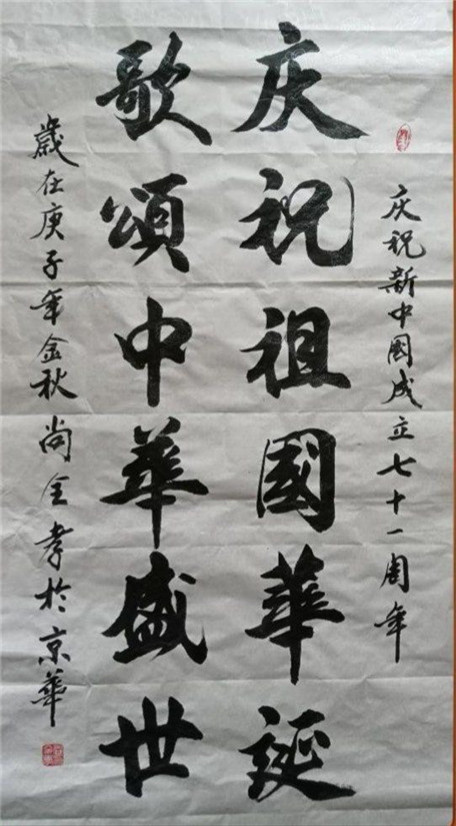 庆祝新中國成立七十一周年
庆祝祖國華誕
歌頌中華盛世
歲在庚子年金秋尚全孝於京華